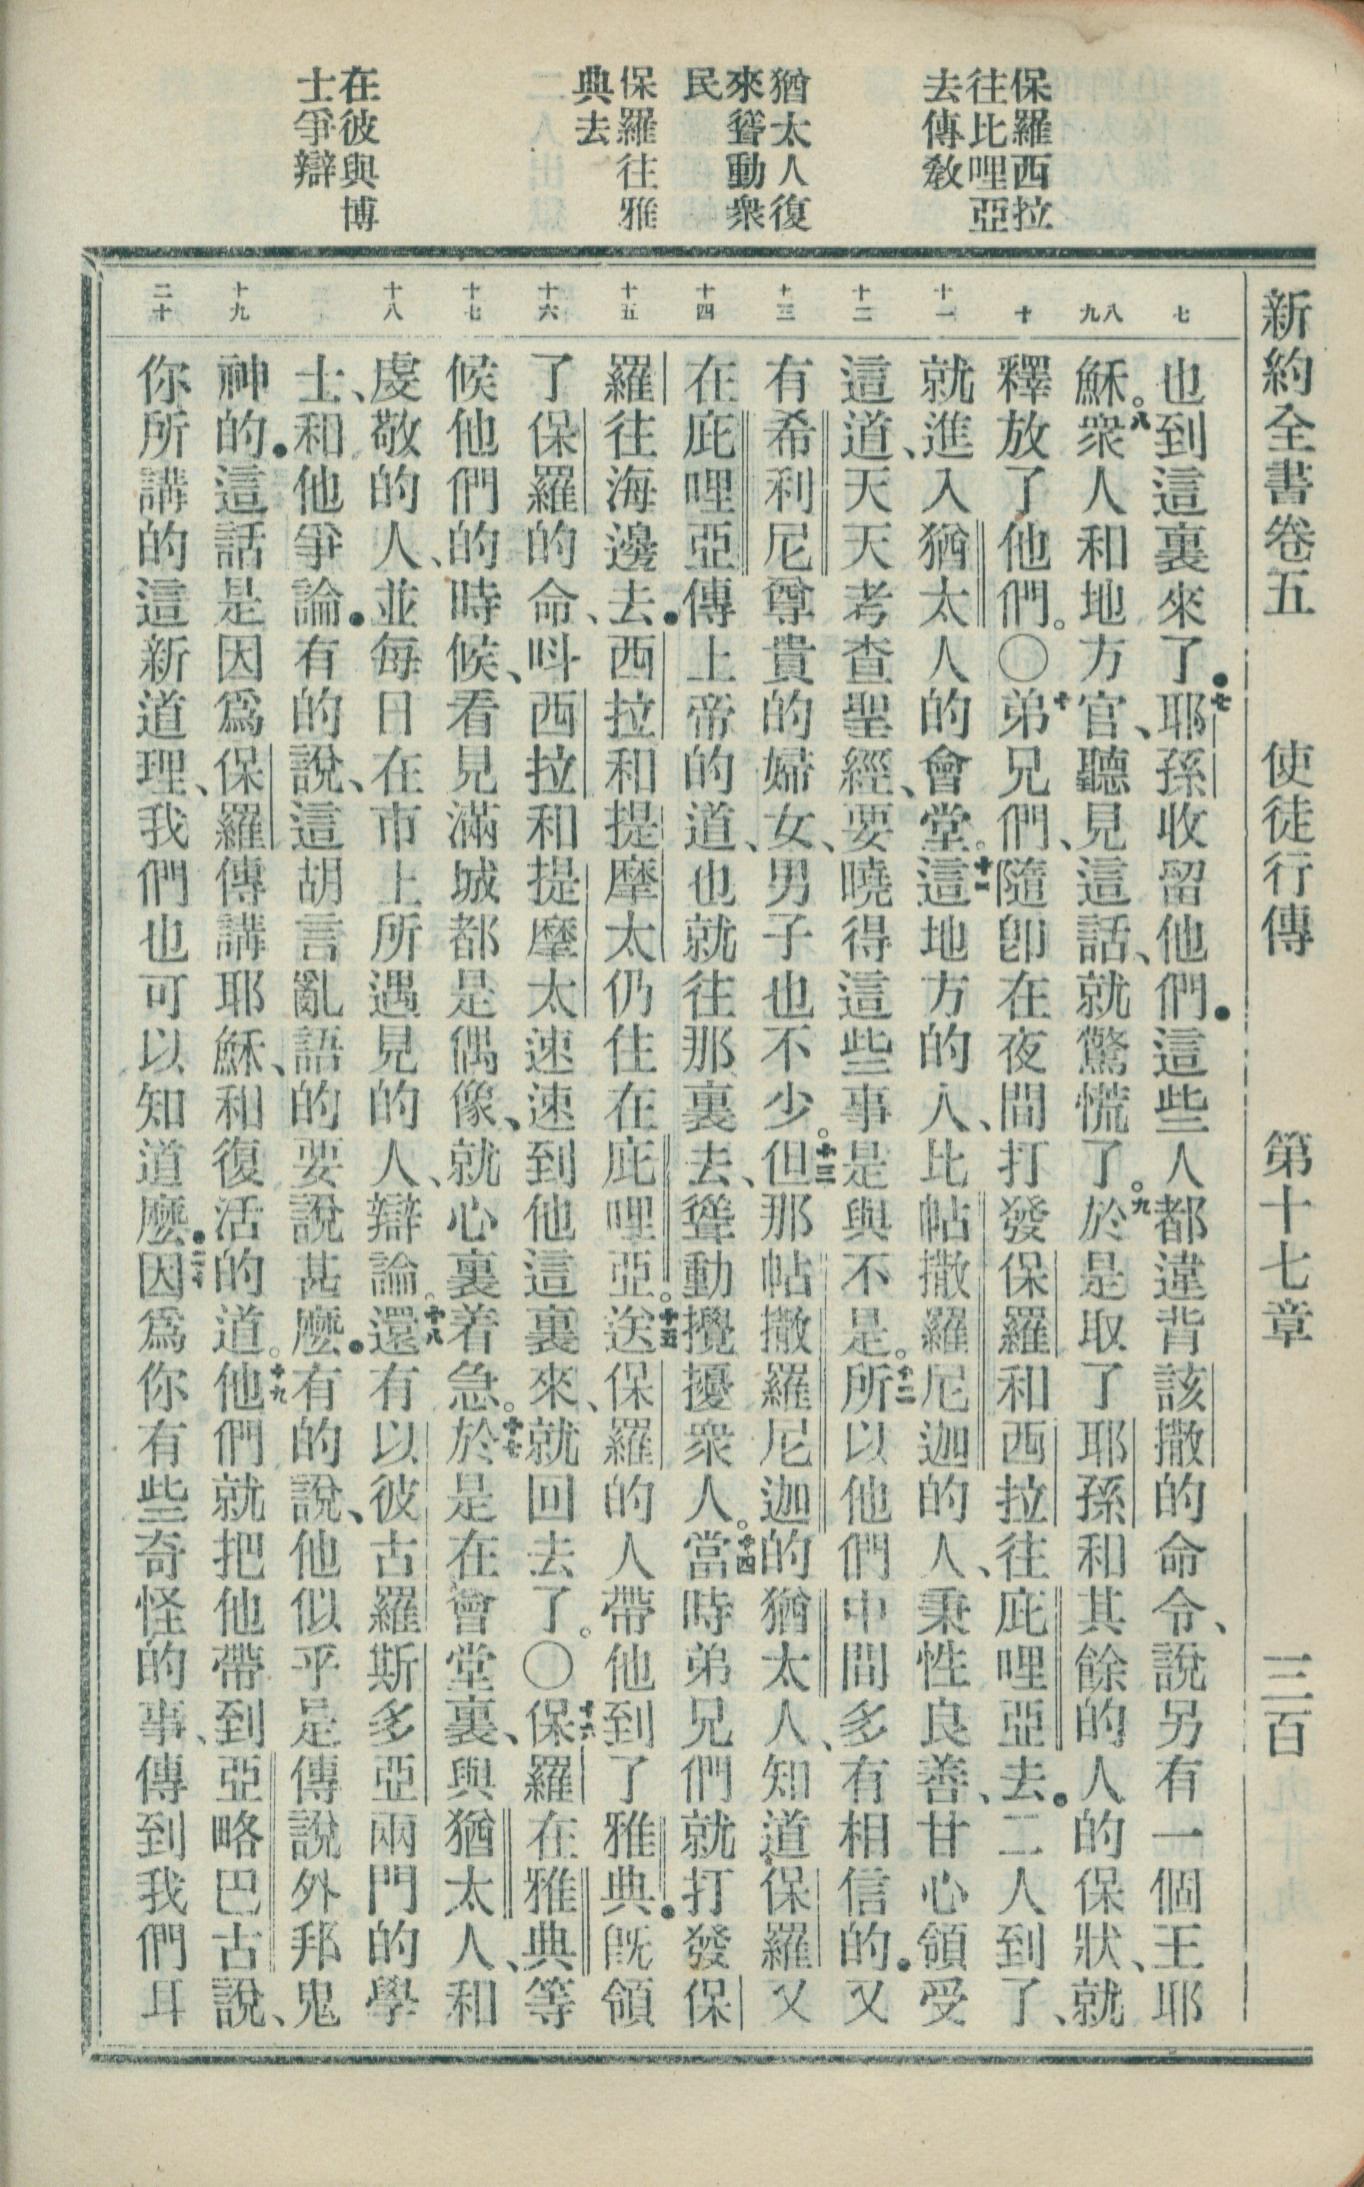 新約全書卷五　使徒行傳　第十七章　三百
保羅西拉
往比哩亞
去傳教
猶太人復
來聳動衆
民
保羅往雅
典去
在彼與博
士爭辯
七
八
九
十
十一
十二
十三
十四
十五
十六
十七
十八
十九
二十
也到這裏來了．七耶孫收留他們．這些人都違背該撒的命令、說另有一個王耶
穌。八衆人和地方官、聽見這話、就驚慌了。九於是取了耶孫和其餘的人的保狀、就
釋放了他們。〇十弟兄們、隨卽在夜間打發保羅和西拉往庇哩亞去．二人到了、
就進入猶太人的會堂。十一這地方的人、比帖撒羅尼迦的人、秉性良善、甘心領受
這道、天天考查聖經、要曉得這些事是與不是。十二所以他們中間多有相信的．又
有希利尼尊貴的婦女、男子也不少。十三但那帖撒羅尼迦的猶太人、知道保羅又
在庇哩亞傳上帝的道、也就往那裏去、聳動攪擾衆人。十四當時弟兄們就打發保
羅往海邊去．西拉和提摩太仍住在庇哩亞。十五送保羅的人帶他到了雅典．旣領
了保羅的命、呌西拉和提摩太速速到他這裏來、就回去了。〇十六保羅在雅典等
候他們的時候、看見滿城都是偶像、就心裏着急。十七於是在會堂裏、與猶太人、和
虔敬的人、並每日在市上所遇見的人、辯論。十八還有以彼古羅斯多亞兩門的學
士、和他爭論．有的說、這胡言亂語的要說甚麽．有的說、他似乎是傳說外邦鬼
神的．這話是因爲保羅傳講耶穌、和復活的道。十九他們就把他帶到亞略巴古說、
你所講的這新道理、我們也可以知道麽．二十因爲你有些奇怪的事、傳到我們耳